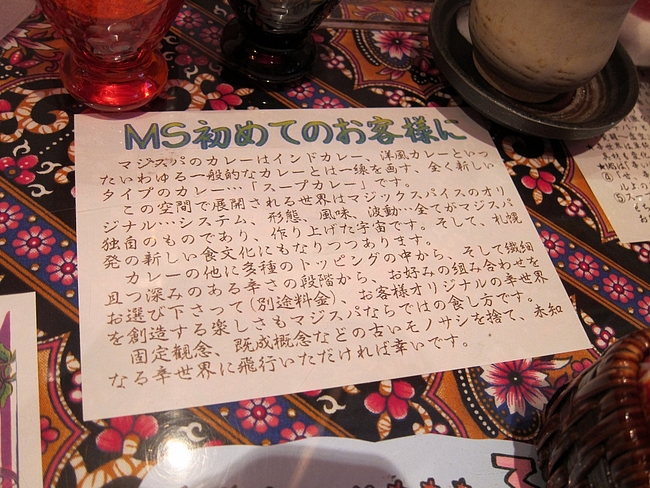 MS初めてのお客様に
マジスパのカレーはインドカレー、洋風カレーといっ
たいわゆる一般的なカレーとは一線を画す、全く新しい
タイプのカレー…「スープカレー」です。
この空間で展開される世界はマジックスパイスのオリ
ジナル…システム、形態、風味、波動…全てがマジスパ
独自のものであり、作り上げた宇宙です。そして、札幌
発の新しい食文化にもなりつつあります。
カレーの他に多種のトッピングの中から、そして繊細
且つ深みのある辛さの段階から、お好みの組み合わせを
お選び下さって(別途料金)、お客様オリジナルの辛世界
を創造する楽しさもマジスパならではの食し方です。
固定観念、既成概念などの古いモノサシを捨て、未知
なる辛世界に飛行いただければ幸いです。